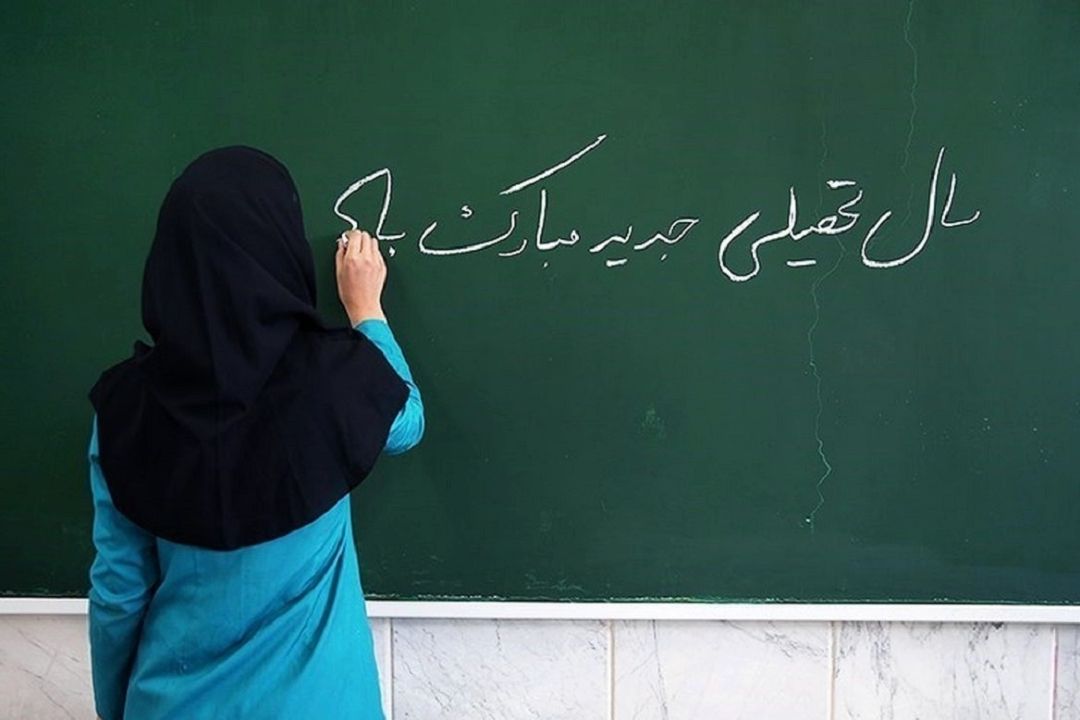 سال تحصیلی جدید مبارک